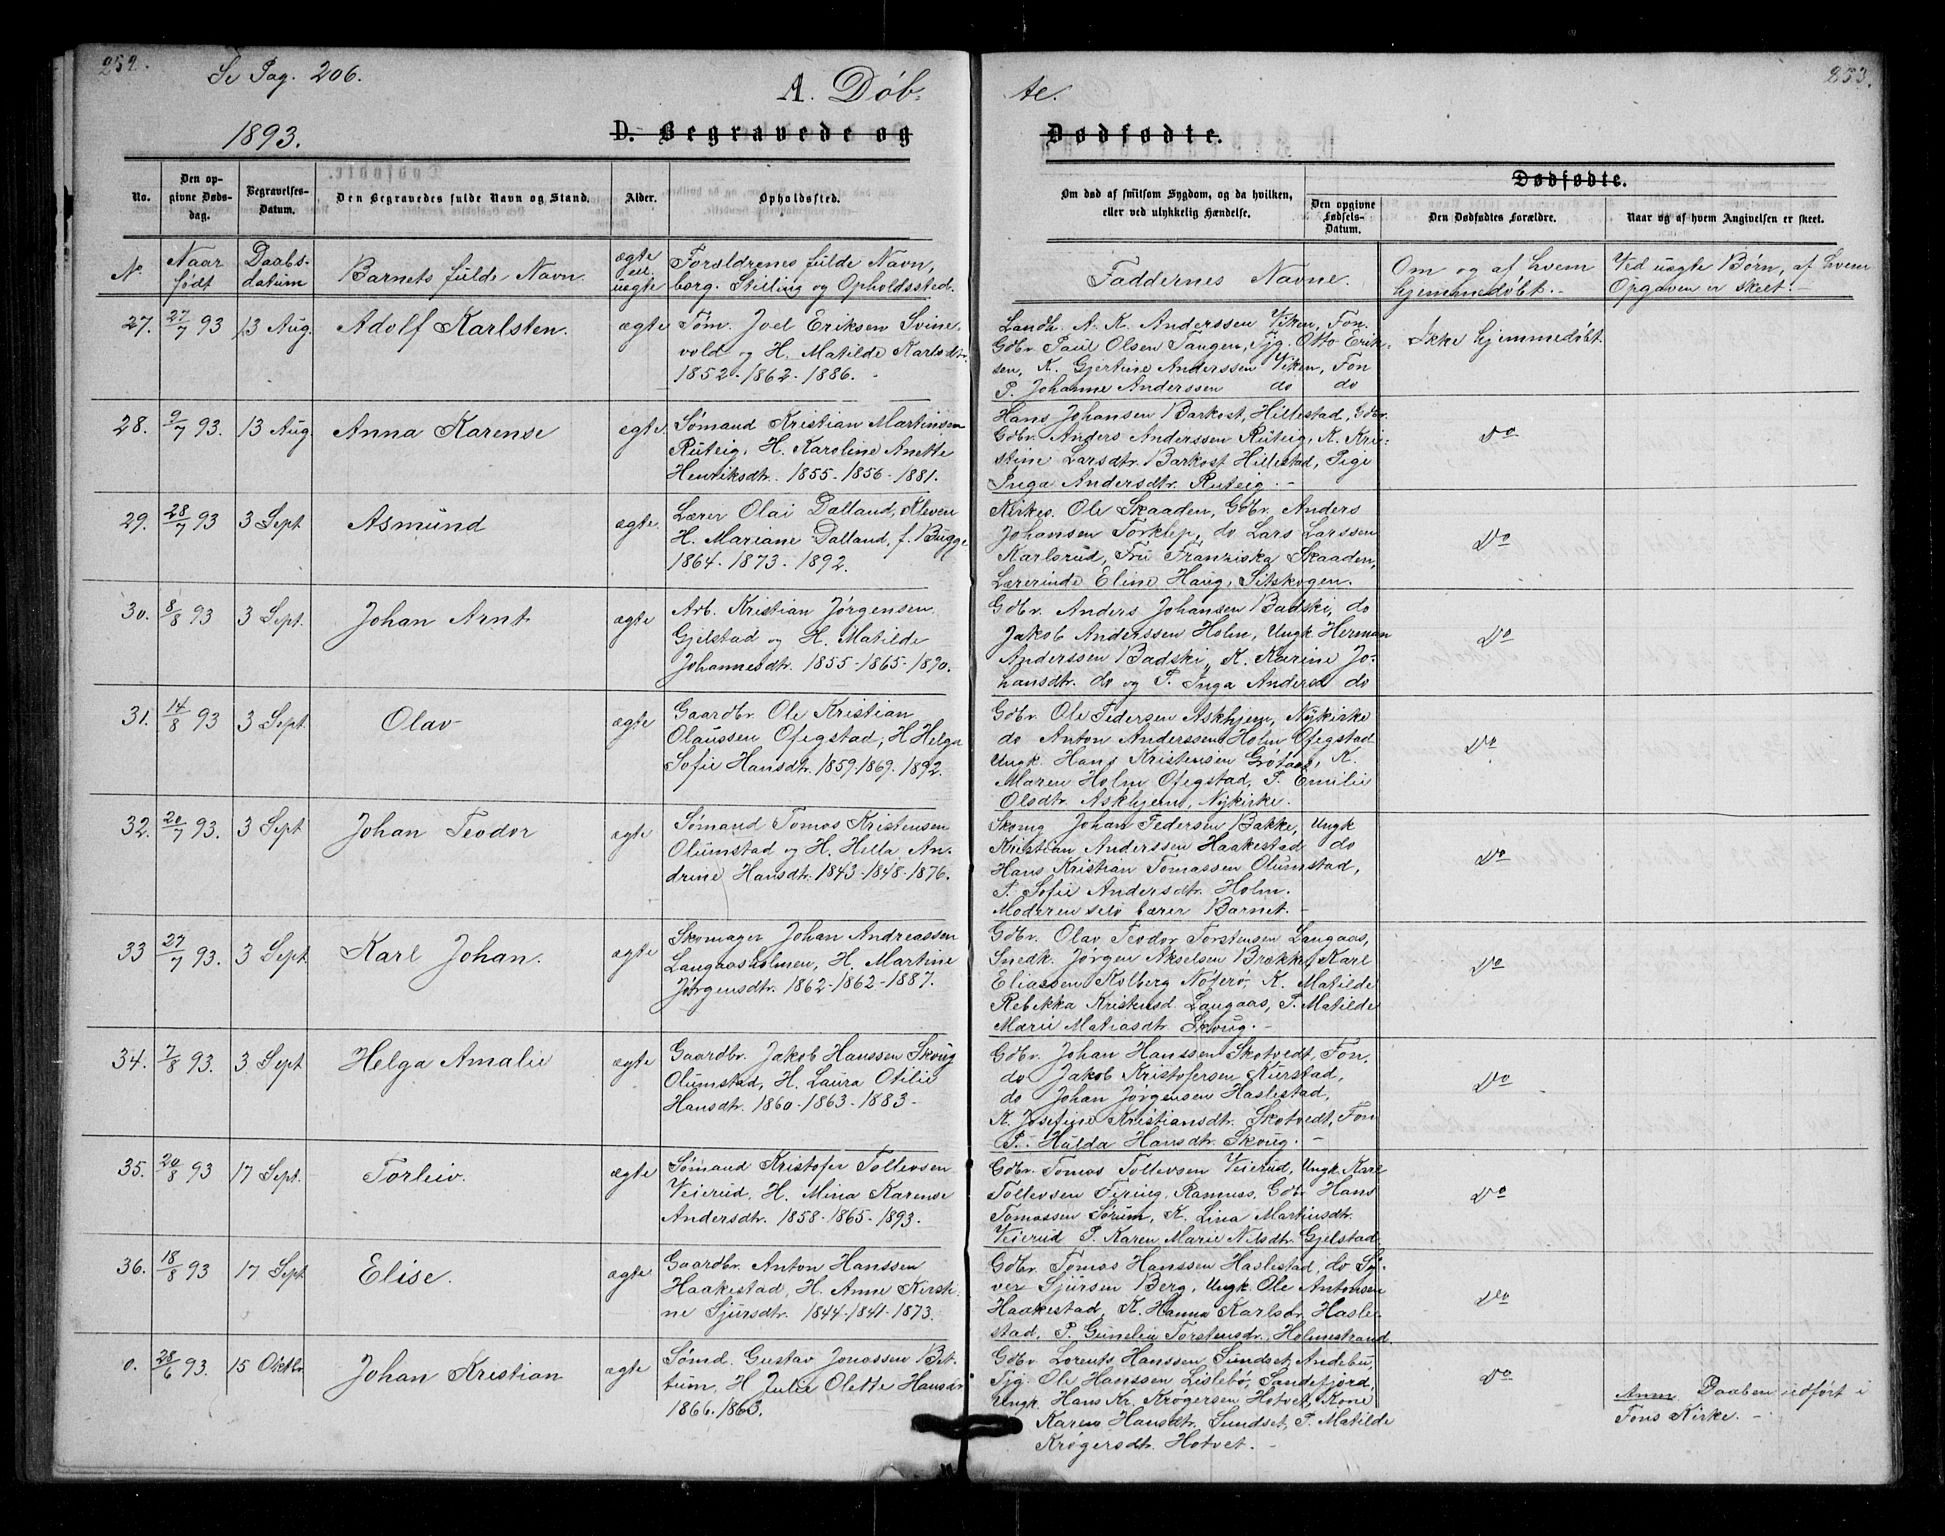 252.
Se Pag. 206.
A. Døb-
1893.
D. Begravede og
No.
Den op-
givne Døds-
dag.
Begravelses-
Datum.
Den Begravedes fulde Navn og Stand.
Alder.
Opholdssted.
No
Naar
født
Daabs-
datum
Barnets fulde Navn.
ægte
el.
uægte
Forældrenes fulde Navn,
borg. Stilling og Opholdssted.
27. 27/7 93 13 Aug. Adolf Karlsten. ægte
Tøm. Joel Eriksen Svine-
vold og H. Matilde Karlsdtr.
1852-1862-1886.
28. 9/7 93. 13 Aug. Anna Karense ægte.
Sømand Kristian Martinsen
Ruteig, H. Karoline Anette
Henriksdtr. 1855-1856-1881.
29. 28/7 93 3 Sept Asmund ægte
Lærer Olai Dalland, Kleven
H. Mariane Dalland, f. Bugge
1864-1873-1892.
30. 8/8 93 3 Sept. Johan Arnt ægte
Arb. Kristian Jørgensen
Gjelstad og H. Matilde
Johannesdtr. 1855-1865-1890.
31. 14/8 93 3 Sept. Olav ægte
Gaardbr. Ole Kristian
Olaussen Ofegstad, H. Helga
Sofie Hansdtr. 1859-1869-1892.
32. 20/7 93. 3 Sept Johan Teodor ægte
Sømand Tomas Kristensen
Olumstad og H. Hella An-
drine Hansdtr. 1843-1848-1876.
33 27/7 93. 3 Sept. Karl Johan. ægte
Skomager Johan Andreassen
Langaasholmen, H. Martine
Jørgensdtr. 1862-1862-1887.
34. 7/8 93. 3 Sept Helga Amalie ægte
Gaardbr. Jakob Hanssen Skoug
Olumstad, H. Laura Otilie
Hansdtr. 1860-1863-1883-
35. 20/8 93 17 Sept. Torleiv. ægte
Sømand Kristofer Tollevsen
Veierud, H. Mina Karense
Andersdtr. 1858-1865-1893.
36. 18/8 93 17 Sept Elise. ægte
Gaardbr. Anton Hanssen
Haakestad, H. Anne Kirsti-
ne Sjursdtr. 1844-1841-1873.
0. 28/6 93. 15 Oktbr Johan Kristian ægte
Sømd. Gustav Jonassen Bet-
tum, H Julie Olette Hansdr
1866-1863.
253.
te.
Dødfødte.
Om død af smitsom Sygdom, og da hvilken,
eller ved ulykkelig Hændelse.
Dødfødte.
Den opgivne
Fødsels-
Datum.
Den Dødfødtes Forældre.
Naar og af hvem Angivelsen er skeet.
Faddernes Navne.
Om og af hvem
hjemmedøbt.
Ved uægte Børn, af hvem
Opgaven er skeet.
Landh. A. K. Anderssen Viken, Fon.
Gdbr. Paul Olsen Tangen, Tjg. Otto Erik-
sen, K. Gjertine Anderssen Viken, Fon
P. Johanne Anderssen do do
Ikke hjemmedøbt.
Hans Johansen Barkost, Hillestad, Gdbr.
Gdbr. Anders Anderssen Ruteig, K. Kri-
stine Larsdtr. Barkost Hillestad, Pige
Inga Andersdtr. Ruteig.
Do
Kirkes. Ole Skaaden, Gdbr. Anders
Johansen Torklep, do Lars Larssen
Karlsrud, Fru Franziska Skaaden,
Lærerinde Eline Haug, Sitskogen.
Do
Gdbr. Anders Johansen Badski, do
Jakob Anderssen Holm, Ungk. Herman
Anderssen Badski, K. Karine Jo-
hansdtr. do og P. Inga Andersd do
Do
Gdbr. Ole Pedersen Askhjem, Nykirke
do Anton Anderssen Holm Ofegstad
Ungk. Hans Kristensen Grøtaas, K.
Maren Holm Ofegstad, P. Emilie
Olsdtr. Askhjem, Nykirke.
Do
Skomg Johan Pedersen Bakke, Ungk
Kristian Anderssen Haakestad do
Hans Kristian Tomassen Olumstad,
P. Sofie Andersdtr. Holm.
Moderen selv bærer Barnet.
Do
Gdbr. Olav Teodor Torstensen Langaas,
Snedk. Jørgen Akselsen Brække, Karl
Eliassen Kolberg Nøterø, K. Matilde
Rebekka Kristensd Langaas, P. Matilde
Marie Matiasdtr. Skoug.
Do
Gdbr. Johan Hanssen Skotvedt, Fon.
do Jakob Kristofersen Kurstad,
do Johan Jørgensen Haslestad,
K. Josefine Kristiansdtr. Skotvedt, Fon
P. Hulda Hansdtr. Skoug.
Do
Gdbr. Tomas Tollevsen Veierud, Ungk. Karl
Tollevsen Firing, Ramnæs, Gdbr Hans
Tomassen Sørum, K. Lina Martinsdtr.
Veierud P. Karen Marie Nilsdtr. Gjelstad.
Do
Gdbr. Tomas Hanssen Haslestad, do Sy-
ver Sjursen Berg, Ungk. Ole Antonsen
Haakestad, K. Hanna Karlsdr. Hasle-
stad, P. Gunelia Torstensdr. Holmestrand.
Do
Gdbr. Lorents Hanssen Sundset, Andebu,
Tjg. Ole Hanssen Lislebø, Sandefjord,
Ungk. Hans Kr. Krøgersen Hotvet, Kone
Karen Hansdtr. Sundset, P. Matilde
Krøgersdtr. Hotvet.
Do
Anm. Daaben udført i
Fons Kirke.